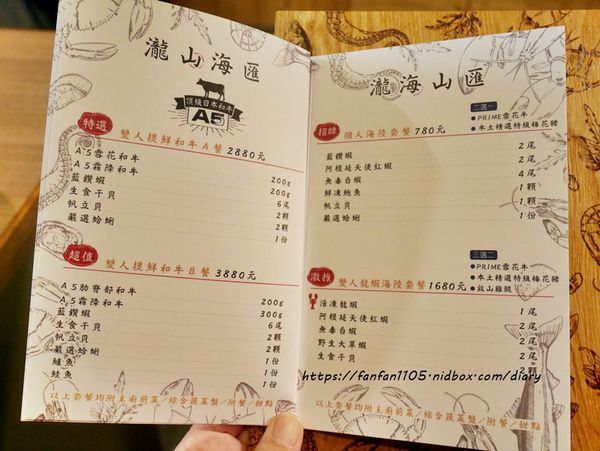 瀧山海匯
頂級日本和牛
A5
特選 雙人提鮮和牛A餐 2880元
A5雪花和牛 200g
A5霜降和牛 200g
藍鑽蝦 6尾
生食干貝 2顆
帆立貝 2顆
嚴選蛤蜊 1份
超值 雙人提鮮和牛B餐 3880元
A5肋脊部和牛 200g
A5霜降和牛 300g
藍鑽蝦 6尾
生食干貝 2顆
帆立貝 2顆
嚴選蛤蜊 1份
鱸魚 1份
鮭魚 1份
以上套餐均附主廚前菜/綜合蔬菜盤/附餐/甜點
瀧海山匯
二選一
●PRIME雪花牛
●本土精選特級梅花豬
招牌 個人海陸套餐 780元
藍鑽蝦 2尾
阿根廷天使紅蝦 2尾
無毒白蝦 4尾
鮮凍鮑魚 1顆
帆立貝 1顆
嚴選蛤蜊 1份
三選二
●PRIME雪花牛
●本土精選特級梅花豬
●放山雞腿
激推 雙人龍蝦海陸套餐 1680元
活凍龍蝦 1尾
阿根廷天使紅蝦 2尾
無毒白蝦
野生大草蝦
生食干貝
https://fanfan1105.nidbox.com/diary
以上套餐均附主廚前菜/綜合蔬菜盤/附餐/甜點